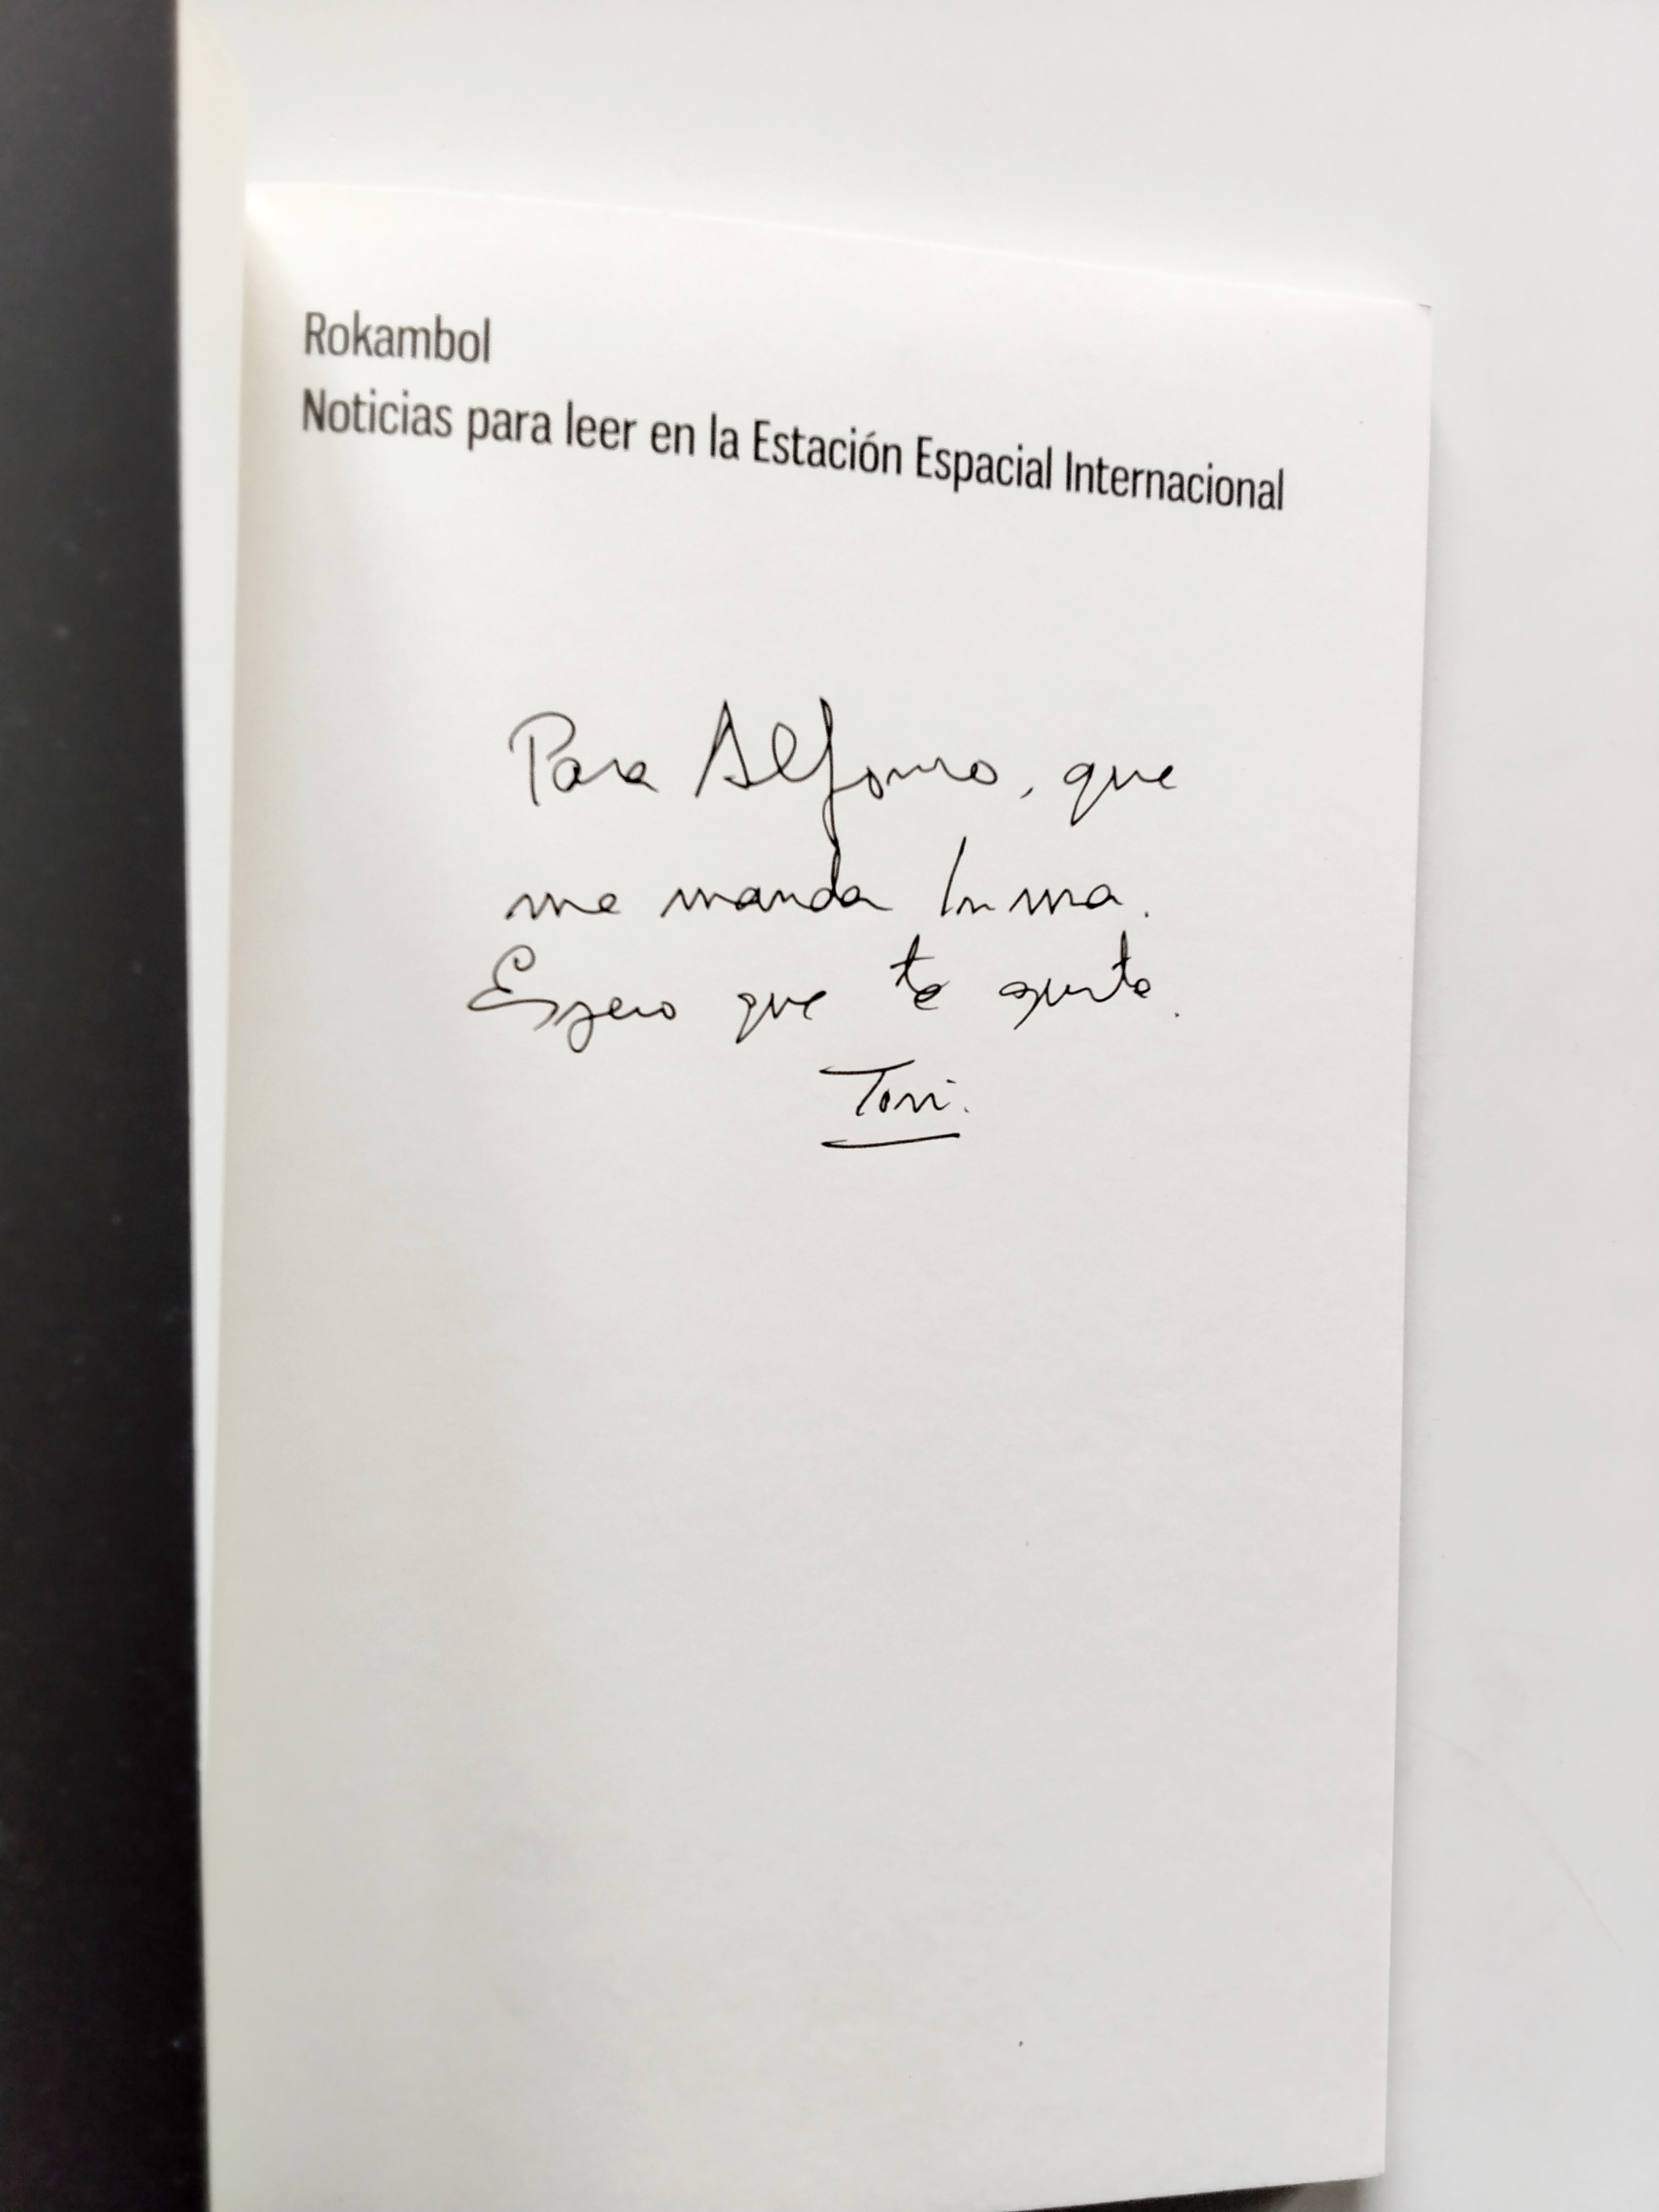 Rokambol
Noticias para leer en la Estación Espacial Internacional
Para Alfonso, que
me manda Inma.
Espero que te guste.
Toni.